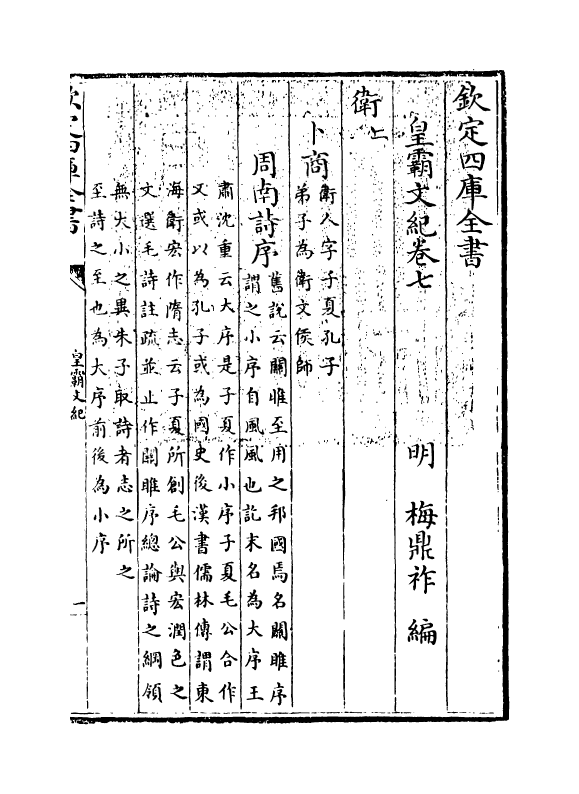 欽定四庫全書
皇霸文紀卷七　明　梅鼎祚　編
衛上
卜商 衛人字子夏孔子
弟子為衛文侯師
周南詩序 舊說云關雎至用之邦國焉名關雎序
謂之小序自風風也訖末名為大序王
肅沈重云大序是子夏作小序子夏毛公合作
又或以為孔子或為國史後漢書儒林傳謂東
海衛宏作隋志云子夏所創毛公與宏潤色之
文選毛詩註疏並止作關雎序總論詩之綱領
無大小之異朱子取詩者志之所之
至詩之至也為大序前後為小序
欽定四庫全書
皇霸文紀
一